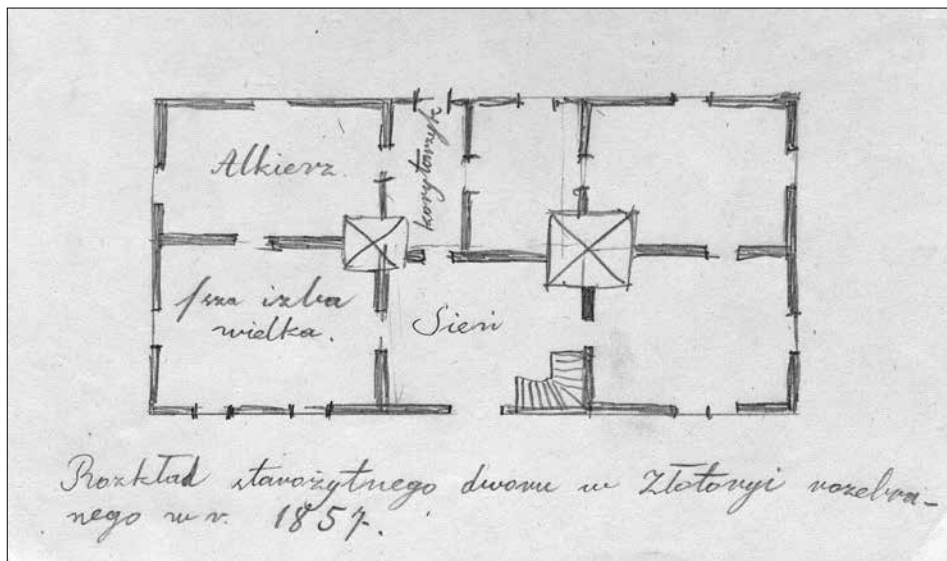 Alkierz
korytarzyk
1sza izba
wielka.
Sień
Rozkład starożytnego dworu w Złotoryi rozebra-
nego w r. 1857.